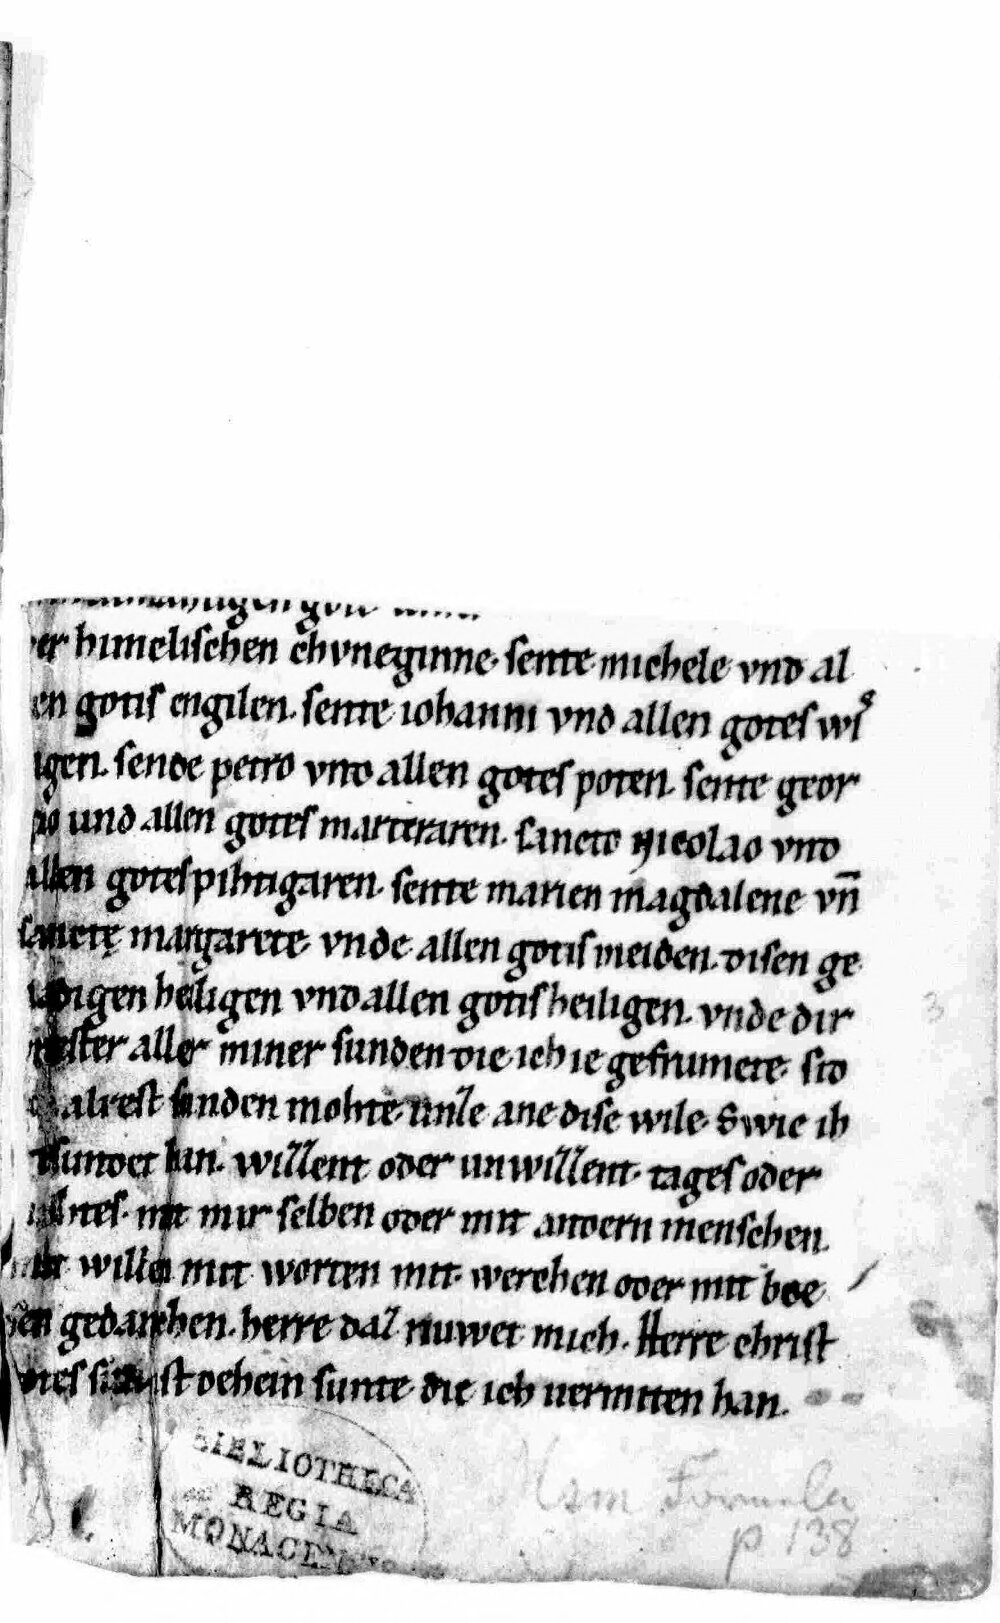 himelischen chvneginne. sente michele vnd al
en gotis engilen. sente iohanni vnd allen gotes wiͤs
igen. sende petro vnd allen gotes poten. sente geor
gio und allen gotes marteraren. sancto nicolao vnd
allen gotes pihtigaren. sente marien magdalene vn̄
sancte margarete vnde allen gotis meiden. disen ge
nadigen heiligen vnd allen gotis heiligen. vnde dir
priester aller miner sunden die ich ie gefrumete. sid
alrest sunden mohte unze ane dise wile. Swie ih
gesundet han. willent oder unwillent. tages oder
nahtes. mit mir selben oder mit andern menschen.
mit willen mit worten mit werchen oder mit boe
sen gedanchen. herre daz riuwet mich. Herre christ
gotes sun ist dehein sunte die ich uermiten han.
BIBLIOTHECA
REGIA
MONACENSIS
Msm Formula
p 138
3